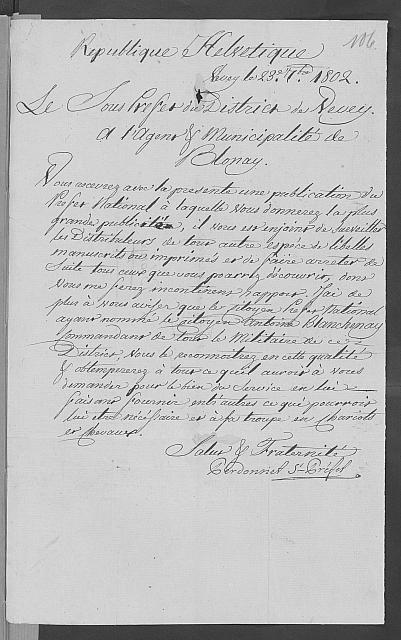 106.
Republique Helvetique
Vevey le 23e. 7bre 1802.
Le Sous Prefet du District de Vevey.
A l'Agent & Municipalité de
Blonay.
Vous recevrez avec la presente une publication du
Prefet National à laquelle vous donnerez la plus
grande publicité, il vous est enjoint de surveiller
les Distributeurs de tout autre espéce de libelles
manuscrits ou imprimés et de faire arreter de
Suite tous ceux que vous pourrez découvrir, dont
vous me ferez incontinent rapport. J'ai de
plus à vous aviser que le Citoyen Prefet National
ayant nommé le Citoyen Antoine Blanchenay
Commandant de tout le Militaire de ce
District, vous le reconnoitrez en cette qualité
& obtempererez à tout ce qu'il auroit à vous
demander pour le bien du Service en lui
faisant fournir entr'autres ce qui pourroit
lui etre nécéssaire et à sa troupe en Chariots
et Chevaux.
Salut & Fraternité
Perdonnet Ss-Préfet.